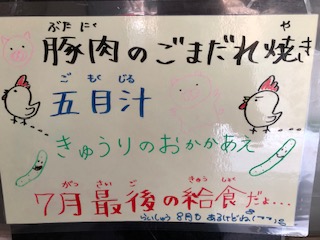 ぶた にく や
豚肉のごまだれ焼き
ご もく じる
五目汁
きゅうりのおかかあえ
がつ さい ご きゅう しょく
7月最後の給食だよ…
らいしゅう 8月も あるけどね(ママ)